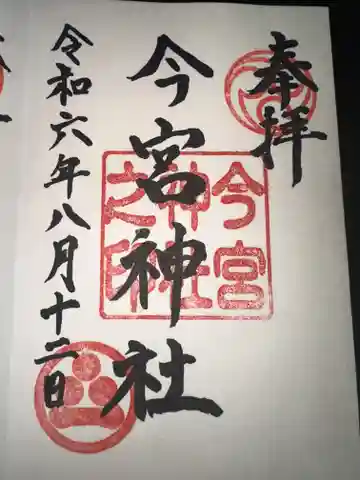 奉拝
今宮神社
今宮神社之印
令和六年八月十二日